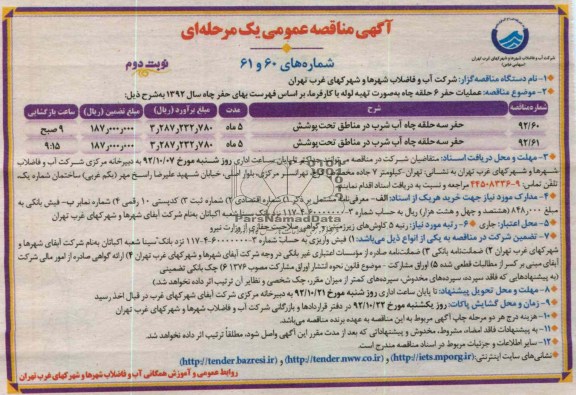 آگهی مناقصه عمومی یک مرحله‌ای
شماره‌های ۶۰ و ۶۱
نوبت دوم
شرکت آب و فاضلاب شهرها و شهرکهای غرب تهران
(سهامی خاص)
۱- نام دستگاه مناقصه‌گزار: شرکت آب و فاضلاب شهرها و شهرکهای غرب تهران
۲- موضوع مناقصه: عملیات حفر ۶ حلقه چاه به‌صورت تهیه لوله با کارفرما، بر اساس فهرست بهای حفر چاه سال ۱۳۹۲ به‌شرح ذیل:
شماره مناقصه شرح مدت مبلغ برآورد (ریال) مبلغ تضمین (ریال) ساعت بازگشایی
۹۲/۶۰ حفر سه حلقه چاه آب شرب در مناطق تحت‌پوشش ۵ ماه ۳٫۲۸۷٫۲۳۲٫۷۸۰ ۱۸۷٫۰۰۰٫۰۰۰ ۹ صبح
۹۲/۶۱ حفر سه حلقه چاه آب شرب در مناطق تحت‌پوشش ۵ ماه ۳٫۲۸۷٫۲۳۲٫۷۸۰ ۱۸۷٫۰۰۰٫۰۰۰ ۹:۱۵
۳- مهلت و محل دریافت اسناد: متقاضیان شرکت در مناقصه می‌توانند حداکثر تا پایان ساعت اداری روز شنبه مورخ ۹۲/۱۰/۰۷ به دبیرخانه مرکزی شرکت آب و فاضلاب
شهرها و شهرکهای غرب تهران به نشانی: تهران -کیلومتر ۷ جاده مخصوص تهرانسر مرکزی- بلوار اصلی، خیابان شهید علیرضا راسخ مهر (یکم غربی) ساختمان شماره یک،
تلفن تماس: ۹-۴۴۵۰۸۳۳۶ مراجعه و نسبت به دریافت اسناد اقدام نمایند.
۴- مدارک مورد نیاز جهت خرید هر یک از اسناد: الف- معرفی‌نامه مشتمل بر ذکر ۱) شماره اقتصادی ۲) شماره ثبت ۳) کدپستی ۱۰ رقمی ۴) شماره نمابر ب- فیش بانکی به
مبلغ ۸۴۸٫۰۰۰ (هشتصد و چهل و هشت هزار) ریال به حساب شماره ۳-۶۰۰۰۰۰۰-۴-۱۱۷ نزد بانک سینا شعبه اکباتان به‌نام شرکت آبفای شهرها و شهرکهای غرب تهران
۵- محل اعتبار: جاری ۶- رتبه مورد نیاز: رتبه ۵ کاوش‌های زیرزمینی و گواهی صلاحیت حفاری از وزارت نیرو
۷- تضمین شرکت در مناقصه به یکی از انواع ذیل می‌باشد: ۱) فیش واریزی به حساب شماره ۳-۶۰۰۰۰۰۰-۴-۱۱۷ نزد بانک سینا شعبه اکباتان به‌نام شرکت آبفای شهرها و
شهرکهای غرب تهران ۲) ضمانتنامه بانکی ۳) ضمانت‌نامه صادره از مؤسسات اعتباری غیر بانکی در وجه شرکت آبفای شهرها و شهرکهای غرب تهران ۴) ارائه گواهی صادره از امور مالی شرکت
آبفای مبنی بر کسر از مطالبات قطعی شده ۵) اوراق مشارکت - موضوع قانون نحوه انتشار اوراق مشارکت مصوب ۱۳۷۶ ۶) چک بانکی تضمینی
(به پیشنهادهایی که فاقد سپرده، سپرده‌های مخدوش، سپرده‌های کمتر از میزان مقرر، چک شخصی و نظایر آن ترتیب اثر داده نخواهد شد.)
۸- مهلت و محل تحویل پیشنهادات: تا پایان ساعت اداری روز شنبه مورخ ۹۲/۱۰/۲۱ به دبیرخانه مرکزی شرکت آبفای شهرهای غرب در قبال اخذ رسید
۹- زمان و محل گشایش پاکات: روز یکشنبه مورخ ۹۲/۱۰/۲۲ در دفتر قراردادها و بازرگانی شرکت آب و فاضلاب شهرها و شهرکهای غرب تهران
۱۰- هزینه درج هر دو مرحله چاپ آگهی مربوط به این مناقصه به عهده برنده مناقصه می‌باشد.
۱۱- به پیشنهادات فاقد امضاء، مشروط، مخدوش و پیشنهاداتی که بعد از مدت مقرر این آگهی واصل شود، مطلقاً ترتیب اثر داده نخواهد شد.
۱۲- سایر اطلاعات و جزئیات مربوط در اسناد مناقصه مندرج است.
نشانی‌های سایت اینترنتی: (http://iets.mporg.ir) و (http://tender.nww.co.ir) و (http://tender.bazresi.ir)
روابط عمومی و آموزش همگانی آب و فاضلاب شهرها و شهرکهای غرب تهران
ParsNamadData